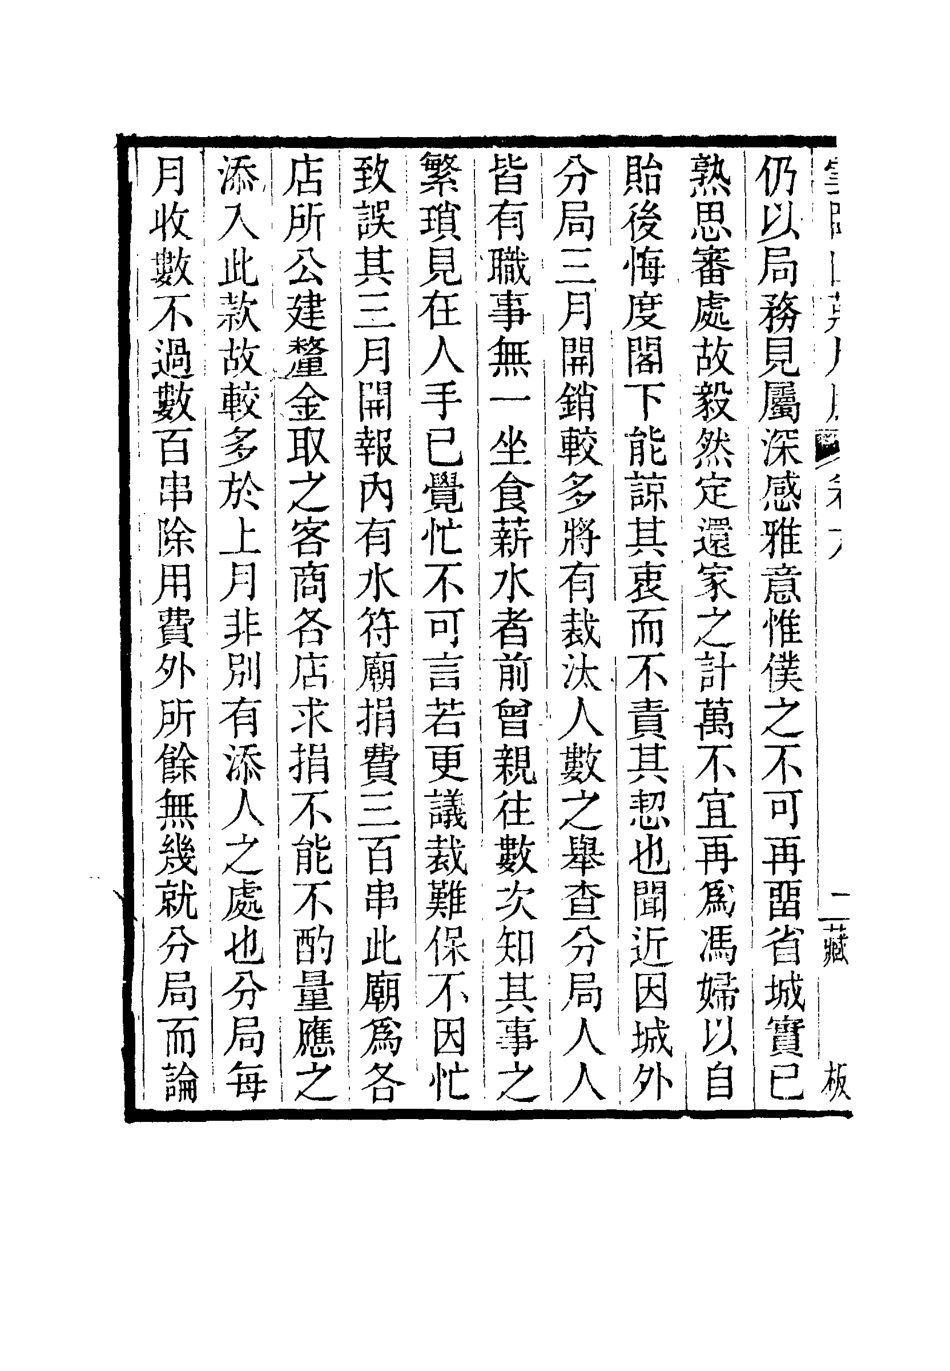 仍以局務見屬深感雅意惟僕之不可再畱省城實已
熟思審處故毅然定還家之計萬不宜再爲馮婦以自
貽後悔度閣下能諒其衷而不責其恝也聞近因城外
分局三月開銷較多將有裁汰人數之舉查分局人人
皆有職事無一坐食薪水者前曾親往數次知其事之
繁瑣見在人手已覺忙不可言若更議裁難保不因忙
致誤其三月開報內有水符廟捐費三百串此廟爲各
店所公建釐金取之客商各店求捐不能不酌量應之
添入此款故較多於上月非別有添人之處也分局每
月收數不過數百串除用費外所餘無幾就分局而論
二 藏 板